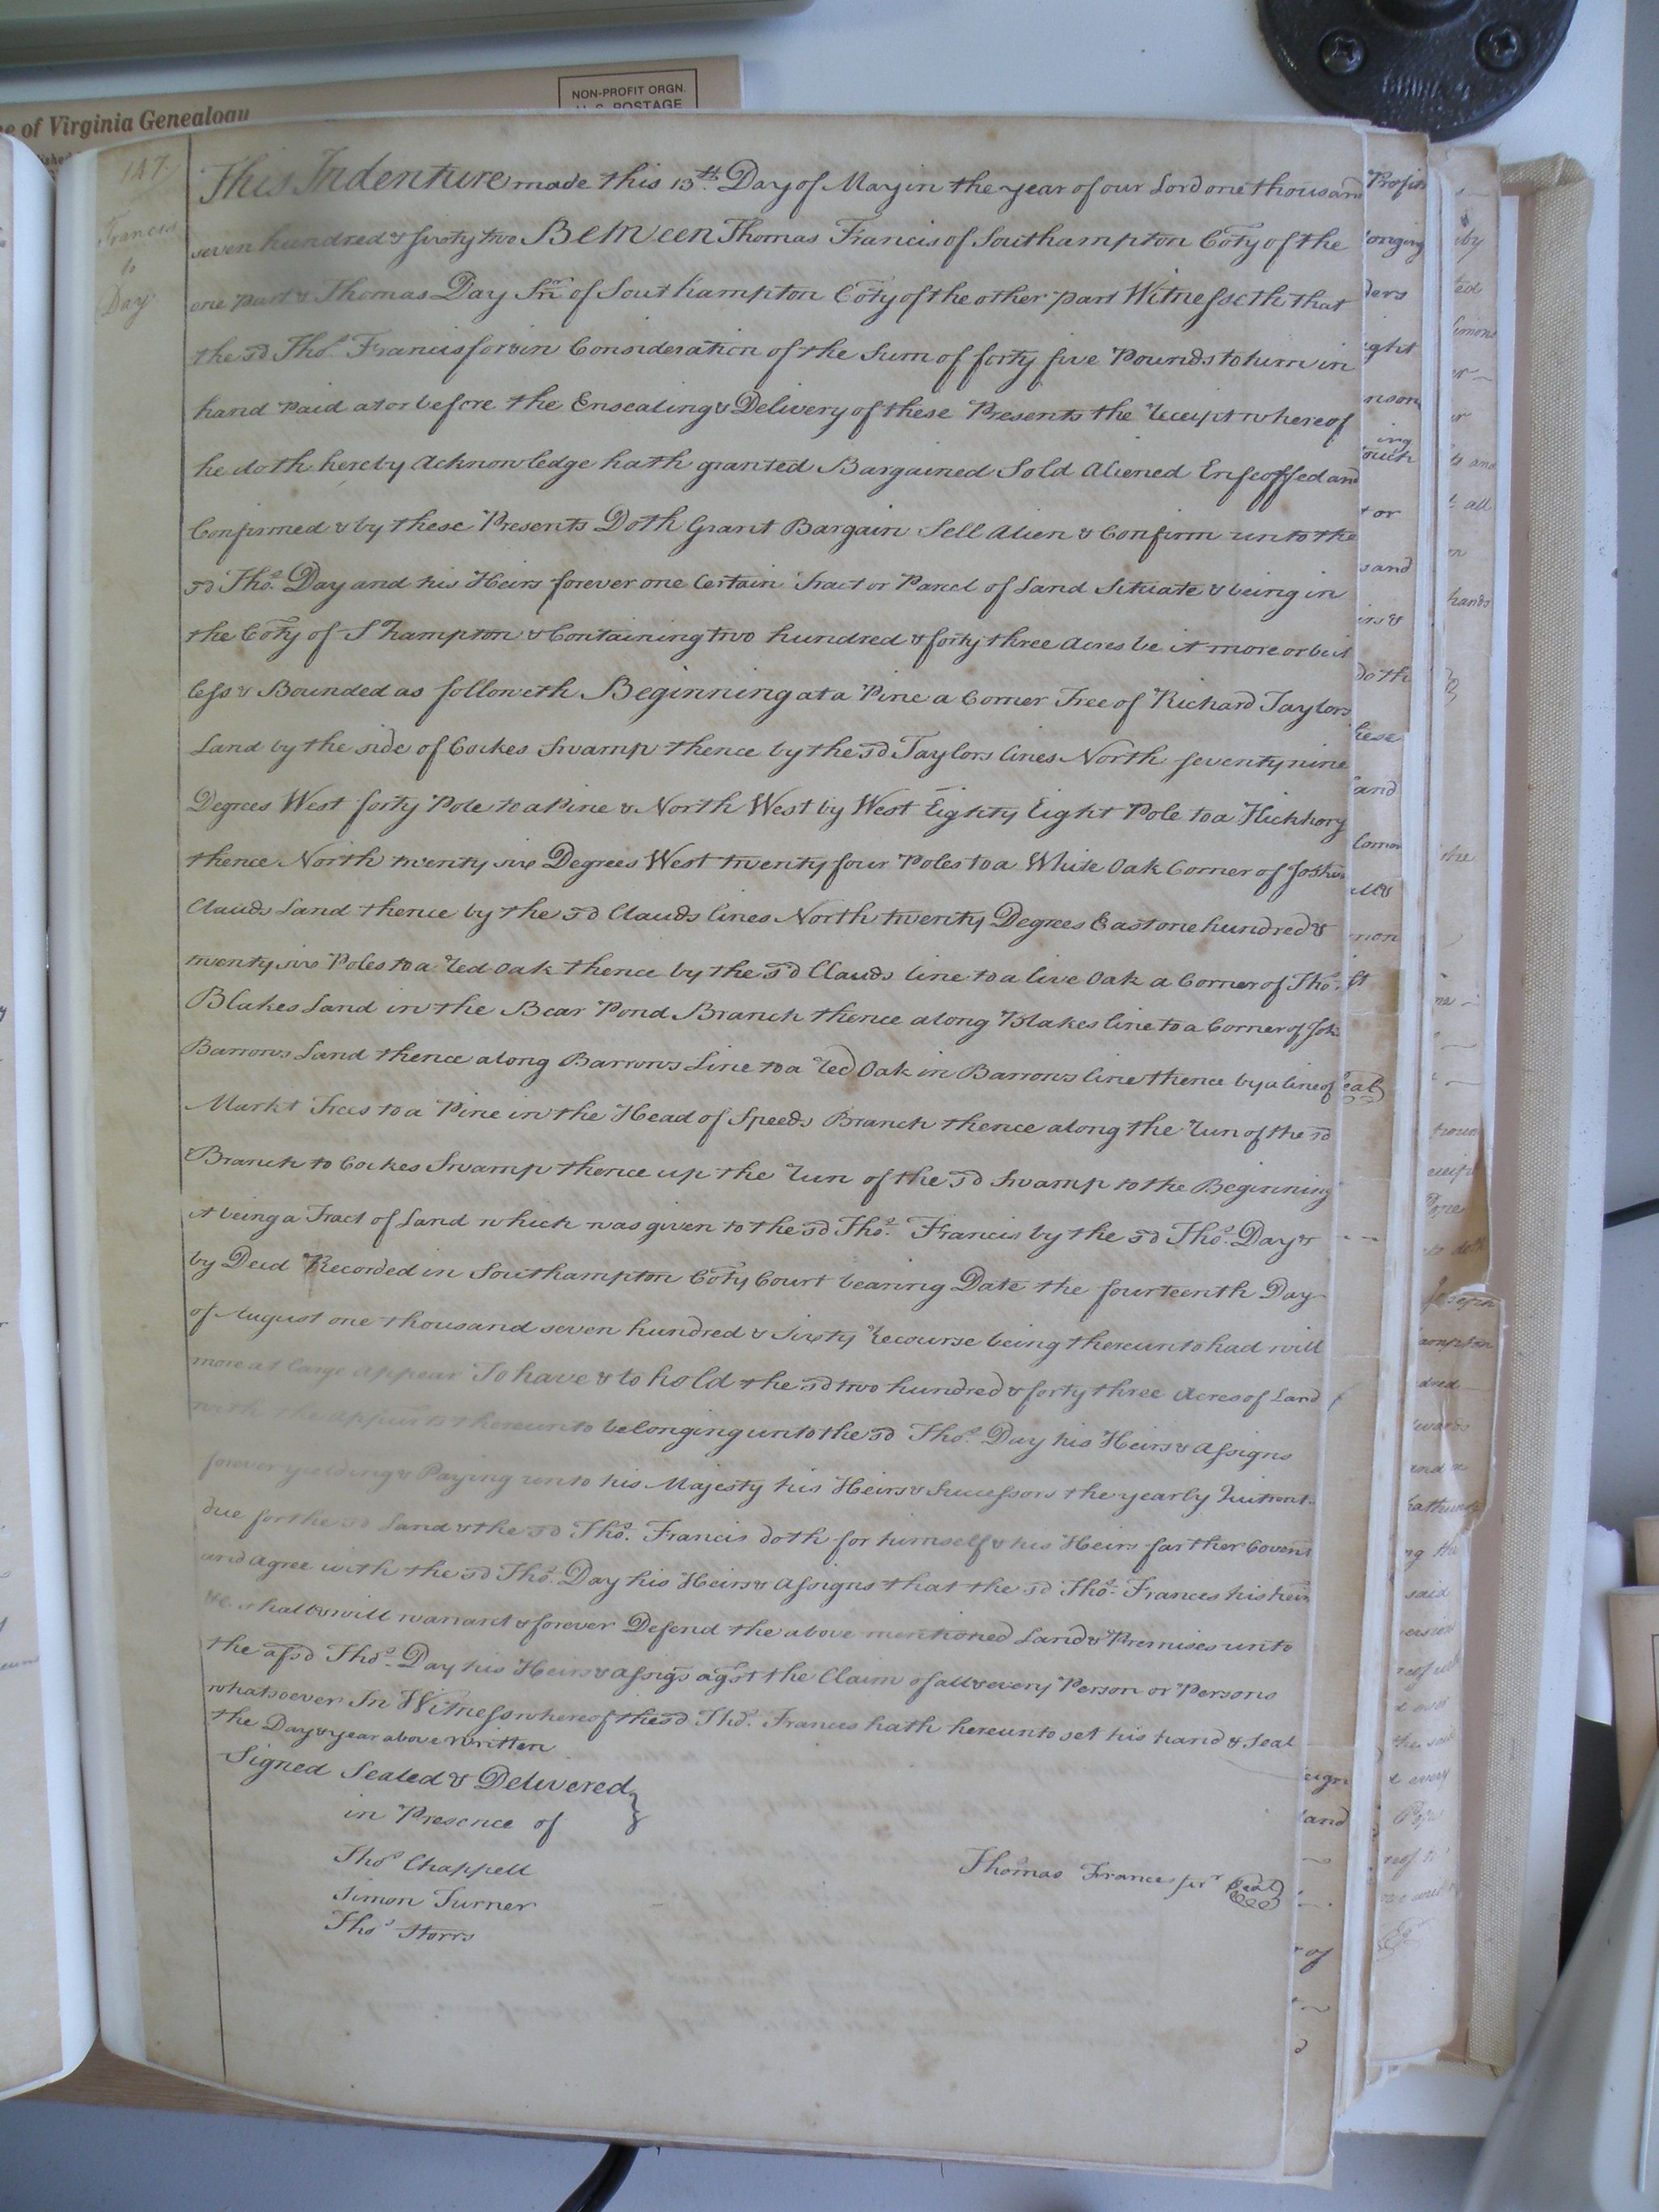 e of Virginia Genealogy
NON-PROFIT ORGN.
U.S. POSTAGE
147
Francis
to
Day
This Indenture made this 13th Day of May in the year of our Lord one thousand
seven hundred & sixty two Between Thomas Francis of Southampton Coty of the
one part & Thomas Day Snr of Southampton Coty of the other part Witnesseth that
the sd Thos Francis for & in Consideration of the Sum of forty five Pounds to him in
hand Paid at or before the Ensealing & Delivery of these Presents the Receipt whereof
he doth hereby Acknowledge hath granted Bargained Sold Aliened Enfeoffed and
Confirmed & by these Presents Doth Grant Bargain Sell Alien & Confirm unto the
sd Thos. Day and his Heirs forever one Certain Tract or Parcel of Land Situate & being in
the Coty of Shampton & Containing two hundred & forty three Acres be it more or be it
less & Bounded as followeth Beginning at a Pine a Corner Tree of Richard Taylors
Land by the side of Cockes Swamp thence by the sd Taylors lines North seventy nine
Degrees West forty Pole to a Pine & North West by West Eighty Eight Pole to a Hickhory
thence North twenty six Degrees West twenty four Poles to a White Oak Corner of Joshua
Clauds Land thence by the sd Clauds lines North twenty Degrees East one hundred &
twenty six Poles to a Red Oak thence by the sd Clauds line to a live Oak a Corner of Thos.
Blakes Land in the Bear Pond Branch thence along Blakes line to a Corner of Joh
Barrows Land thence along Barrows Line to a Red Oak in Barrows line thence by a line of
Markt Trees to a Pine in the Head of Speeds Branch thence along the Run of the sd
Branch to Cockes Swamp thence up the Run of the sd Swamp to the Beginning
it being a Tract of Land which was given to the sd Thos. Francis by the sd Thos. Day &
by Deed Recorded in Southampton Coty Court bearing Date the fourteenth Day
of August one thousand seven hundred & Sixty Recourse being thereunto had will
more at large appear To have & to hold the sd two hundred & forty three Acres of Land
with the appurts thereunto belonging unto the sd Thos. Day his Heirs & Assigns
forever yielding & Paying unto his Majesty his Heirs & Successors the yearly Quitrents
due for the sd Land & the sd Thos. Francis doth for himself & his Heirs farther Covent
and agree with the sd Thos. Day his Heirs & Assigns that the sd Thos. Frances his heirs
&c. shall & will warrant & forever Defend the above mentioned Land & Premises unto
the afsd Thos. Day his Heirs & Assigs agst the Claim of all & every Person or Persons
whatsoever In Witness whereof the sd Thos. Frances hath hereunto set his hand & Seal
the Day & year above written
Signed Sealed & Delivered
in Presence of
Thos Chappell
Simon Turner
Thos Storrs
Thomas Frances senr Seal